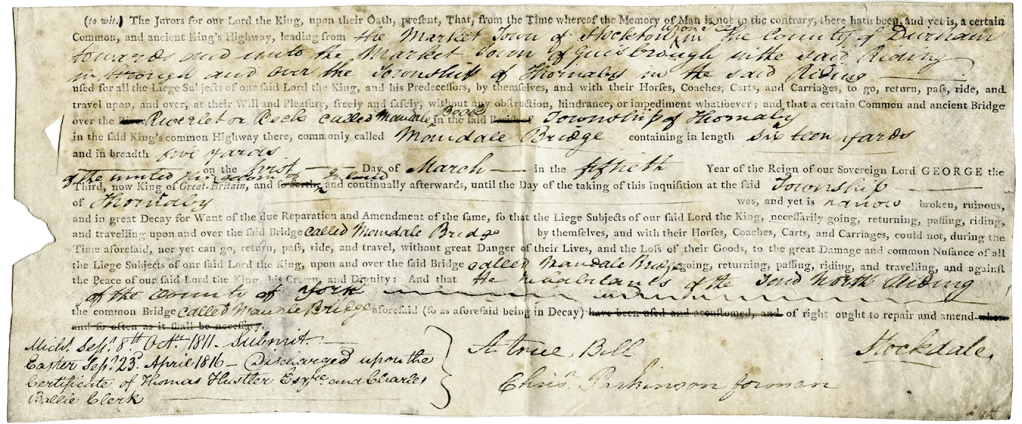 (to wit.) The Jurors for our Lord the King, upon their Oath, present, That, from the Time whereof the Memory of Man is not to the contrary, there hath been, and yet is, a certain
Common, and ancient King's Highway, leading from the Market Town of Stockton upon Tees in the County of Durham
towards and unto the Market Town of Guisbrough in the said Riding
in through and over the Township of Thornaby in the said Riding
used for all the Liege Subjects of our said Lord the King, and his Predecessors, by themselves, and with their Horses, Coaches, Carts, and Carriages, to go, return, pass, ride, and
travel upon, and over, at their Will and Pleasure, freely and safely, without any obstruction, hindrance, or impediment whatsoever; and that a certain Common and ancient Bridge
over the Riverlet or Beck called Mandale Beck in the said Township of Thornaby
in the said King's common Highway there, commonly called Mandale Bridge containing in length sixteen yards
and in breadth five yards
on the first Day of March in the fiftieth Year of the Reign of our Sovereign Lord GEORGE the
of the united Kingdom of
Third, now King of Great-Britain, and Ireland and continually afterwards, until the Day of the taking of this Inquisition at the said Township
of Thornaby was, and yet is narrow broken, ruinous,
and in great Decay for Want of the due Reparation and Amendment of the same, so that the Liege Subjects of our said Lord the King, necessarily going, returning, passing, riding,
and travelling upon and over the said Bridge called Mandale Bridge by themselves, and with their Horses, Coaches, Carts, and Carriages, could not, during the
Time aforesaid, nor yet can go, return, pass, ride, and travel, without great Danger of their Lives, and the Loss of their Goods, to the great Damage and common Nusance of all
the Liege Subjects of our said Lord the King, upon and over the said Bridge called Mandale Bridge going, returning, passing, riding, and travelling, and against
the Peace of our said Lord the King, his Crown, and Dignity: And that the Inhabitants of the said North Riding
of the County of York
the common Bridge called Mandle Bridge aforesaid (so as aforesaid being in Decay) have been used and accustomed, and of right ought to repair and amend when
and so often as it shall be necessary.
Michs. Sess. 8th Octr. 1811. Submit
Easter Sess. 23d. April 1816 - Discharged upon the
Certificate of Thomas Hustler Esqre. and Charles
Baillie Clerk
A true Bill
Chrisr. Parkinson foreman
Stockdale.